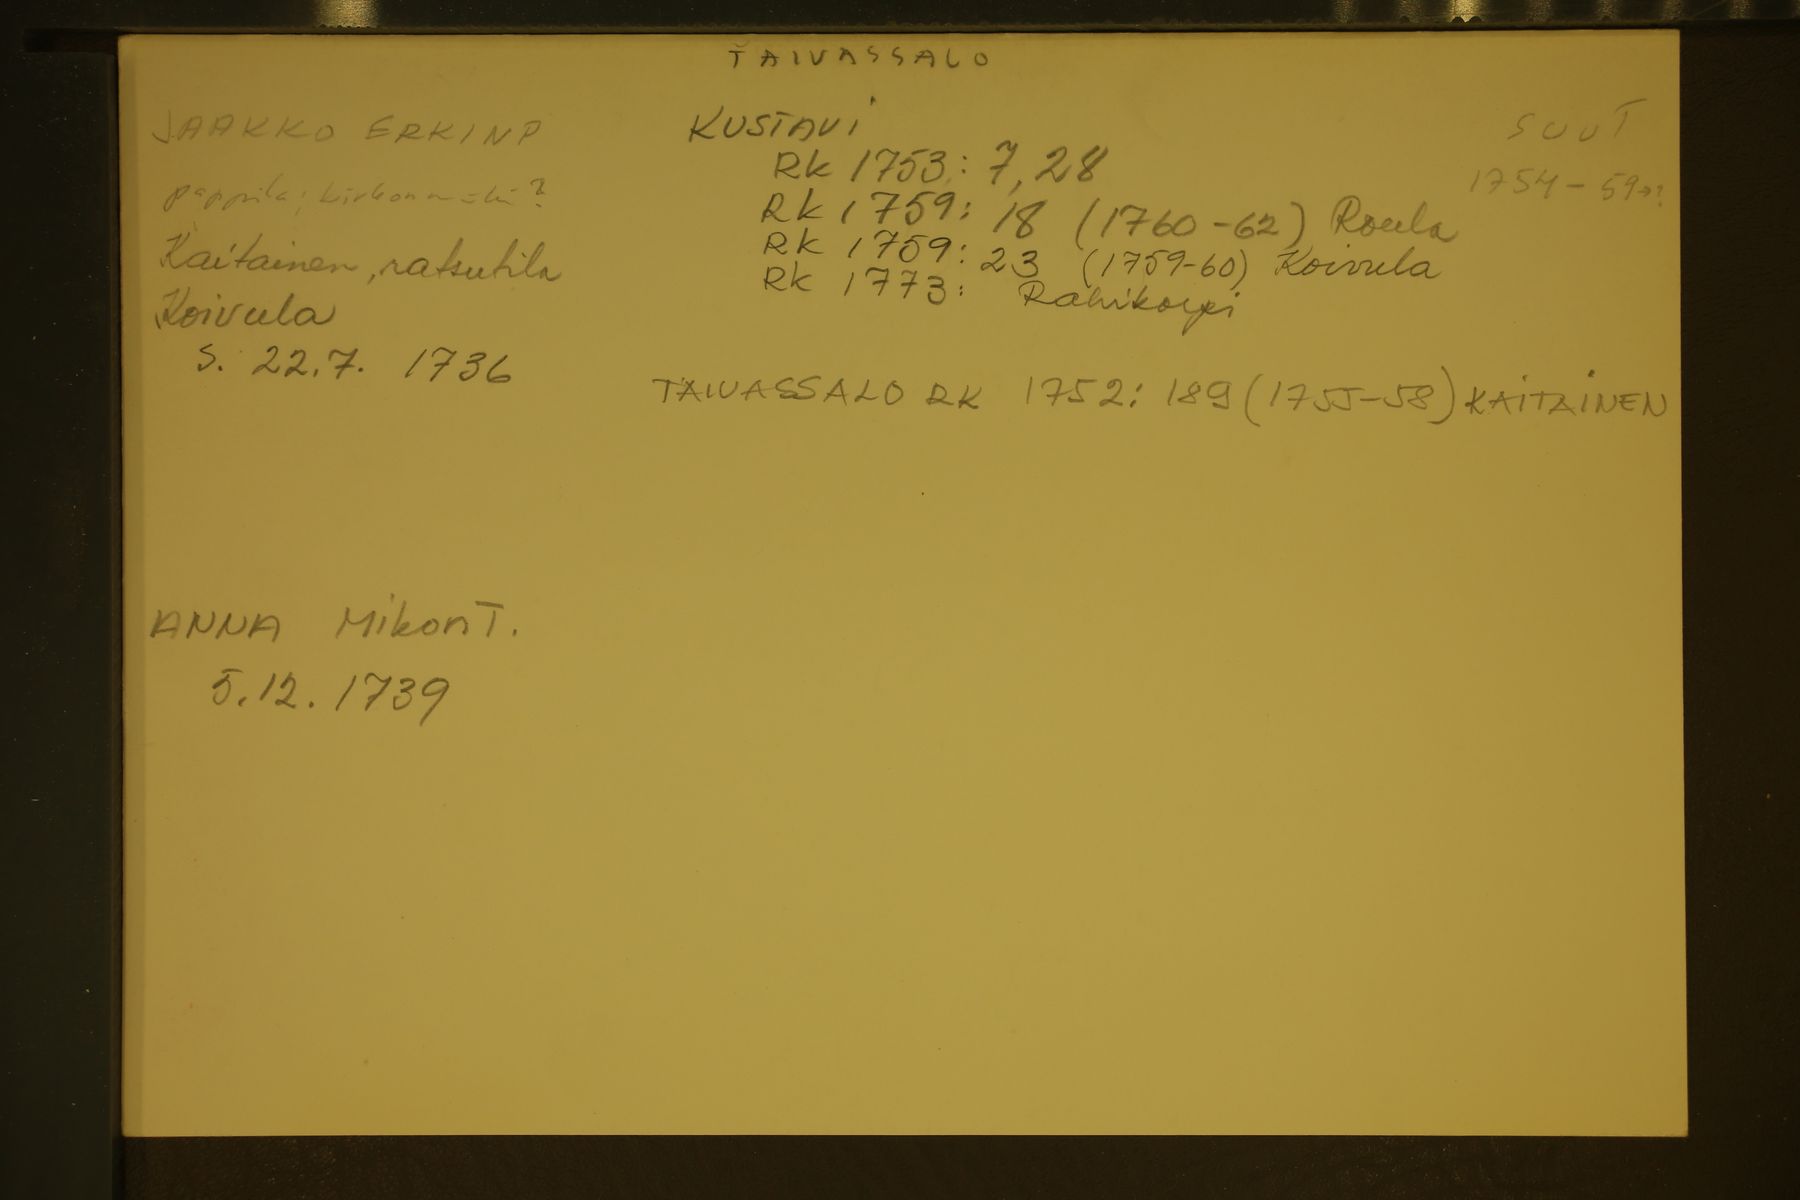 TAIVASSALO
JAAKKO ERKINP
pappila; kirkonmäki?
Kaitainen, ratsutila
Koivula
s. 22.7. 1736
KUSTAVI
RK 1753: 7, 28
RK 1759: 18 (1760-62) Roula
RK 1759: 23 (1759-60) Koivula
RK 1773: Rahikorpi
SUUT
1754-59→?
TAIVASSALO RK 1752: 189 (1755-58) KAITAINEN
ANNA MikonT.
5.12. 1739